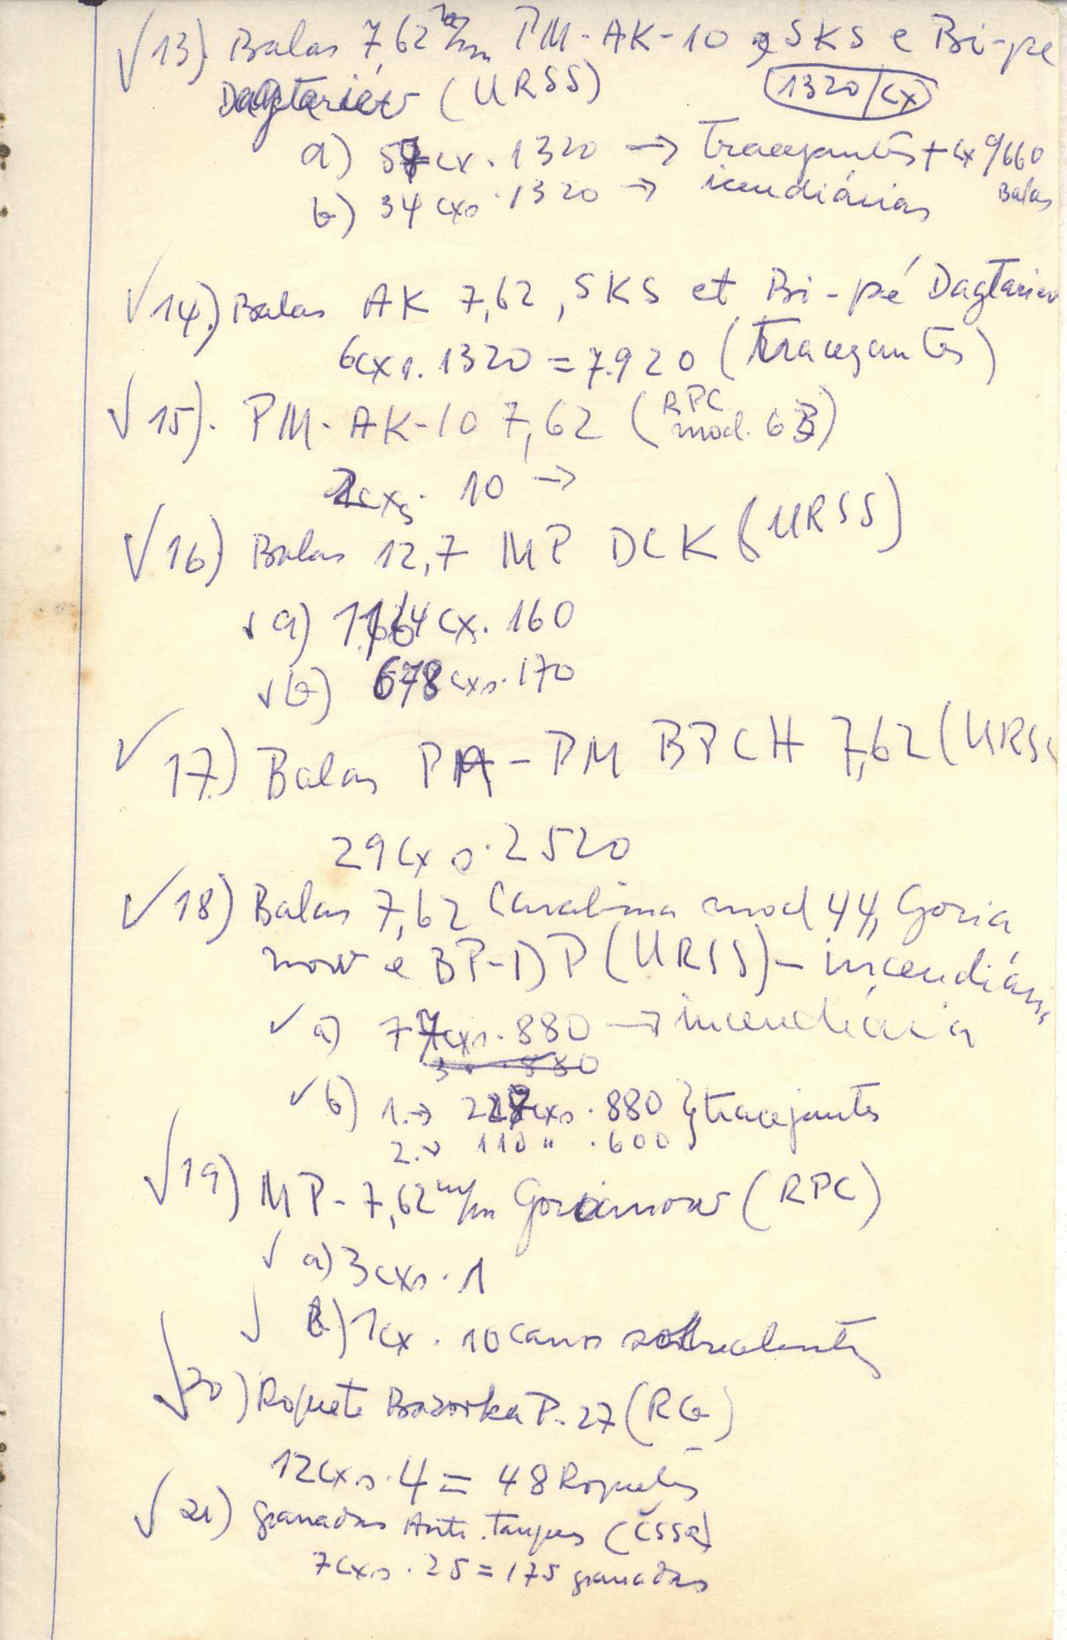 √13) Balas 7,62 m/m PM-AK-10, SKS e Bi-pé
Dagtariev (URSS) 1320/cx
a) 57 cx. 1320 → Tracejantes + cx c/660
Balas
b) 34 cxs. 1320 → icendiárias
√14) Balas AK 7,62, SKS et Bi-pé Dagtariev
6cxs. 1320 = 7.920 (tracejantes)
√15). PM-AK-10 7,62 (RPC mod. 63)
2cxs. 10 →
√16) Balas 12,7 MP DCK (URSS)
√a) cx. 160
√b) 678 cxs. 170
√17) Balas PA-PM BPCH 7,62 (URSS
29 cxs. 2520
√18) Balas 7,62 Carabina mod 44, Goria
now e BP-DP (URSS) - incendiária
√a) 77cxs. 880 → incendiária
30 . 880
√b) 1.→ cxs. 880 } tracejantes
2.→ 110 " . 600
√19) MP-7,62 m/m Gorianow (RPC)
√a) 3cxs. 1
√b) 1cx. 10 canos sobrecelentes
√20) Roquete Bazooka P.27 (RG)
12cxs. 4 = 48 Roquetes
√21) Granadas Anti-Tanques (ČSSR)
7cxs. 25 = 175 granadas